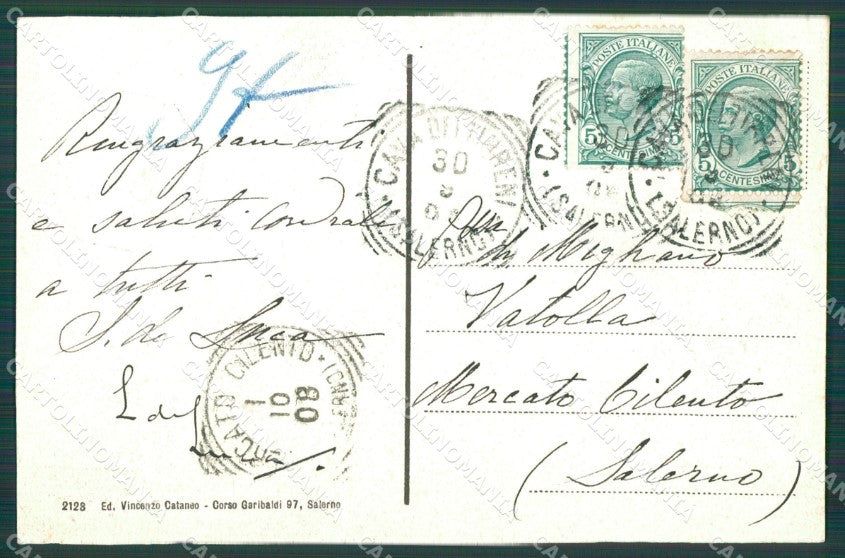 94
Ringraziamenti
e saluti cordiali
a tutti
S. de Luca
L de
POSTE ITALIANE
5 CENTESIMI 5
POSTE ITALIANE
5 CENTESIMI 5
CAVA DEI TIRRENI
30
9
08
(SALERNO)
CAVA
30
9
08
(SALERNO)
CAVA DEI TIRRENI
30
9
08
(SALERNO)
di Migliano
Vatolla
Mercato Cilento
(Salerno)
MERCATO CILENTO
1
10
08
2128 Ed. Vincenzo Cataneo - Corso Garibaldi 97, Salerno
CARTOLINOMANIA